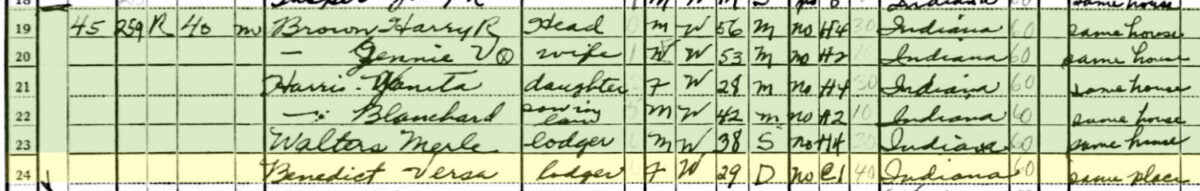 19 45 259 R 40 no Brown Harry R Head M W 56 M no H4 30 Indiana 60 same house
20 — Jennie V wife W W 53 M no H2 10 Indiana 60 same house
21 Harris Juanita daughter F W 28 M no H4 30 Indiana 60 same house
22 — Blanchard son in law M W 42 M no H2 10 Indiana 60 same house
23 Walters Merle lodger M W 38 S no H4 30 Indiana 60 same house
24 Benedict Versa lodger F W 29 D no C1 40 Indiana 60 same place